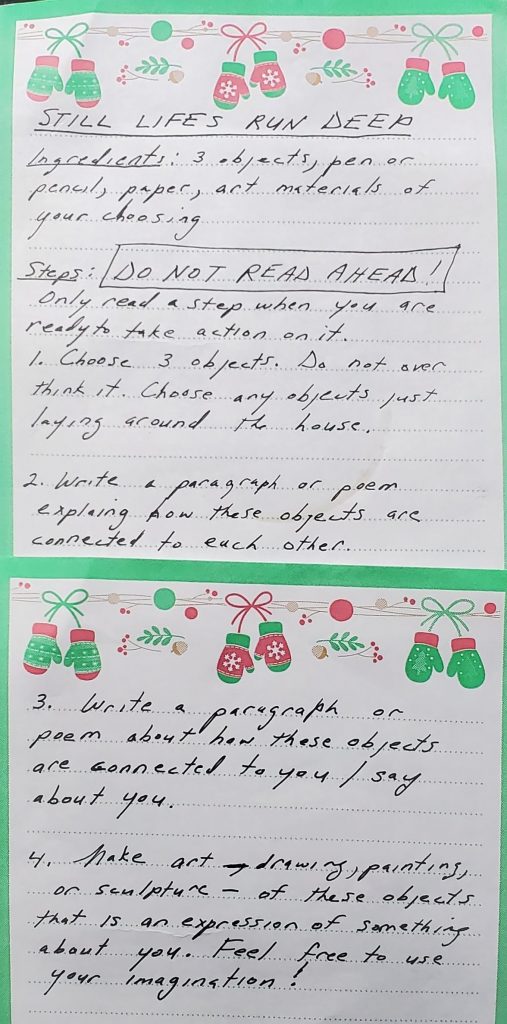 STILL LIFES RUN DEEP
Ingredients: 3 objects, pen or
pencil, paper, art materials of
your choosing
Steps: DO NOT READ AHEAD!
Only read a step when you are
ready to take action on it.
1. Choose 3 objects. Do not over
think it. Choose any objects just
laying around the house.
2. Write a paragraph or poem
explaing how these objects are
connected to each other.
3. Write a paragraph or
poem about how these objects
are connected to you / say
about you.
4. Make art → drawing, painting,
or sculpture – of these objects
that is an expression of something
about you. Feel free to use
your imagination!